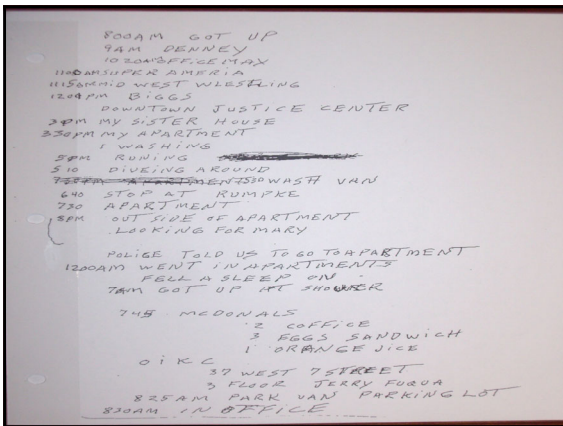 800AM GOT UP
9AM DENNEY
1020AM OFFICE MAX
1100AM SUPER AMERIA
1115AM MID WEST WLESTLING
1200PM BIGGS
DOWNTOWN JUSTICE CENTER
3PM MY SISTER HOUSE
330PM MY APARTMENT
1 WASHING
5PM RUNING
510 DIVEING AROUND
APARTMENT WASH VAN
640 STOP AT RUMPKE
730 APARTMENT
8PM OUT SIDE OF APARTMENT
LOOKING FOR MARY
POLICE TOLD US TO GO TO APARTMENT
1200AM WENT IN APARTMENTS
FELL A SLEEP ON
7AM GOT UP AT SHOWER
745 MCDONALS
2 COFFICE
3 EGGS SANDWICH
1 ORANGE JICE
OIKC
37 WEST 7 STREET
3 FLOOR JERRY FUQUA
825AM PARK VAN PARKING LOT
830AM IN OFFICE